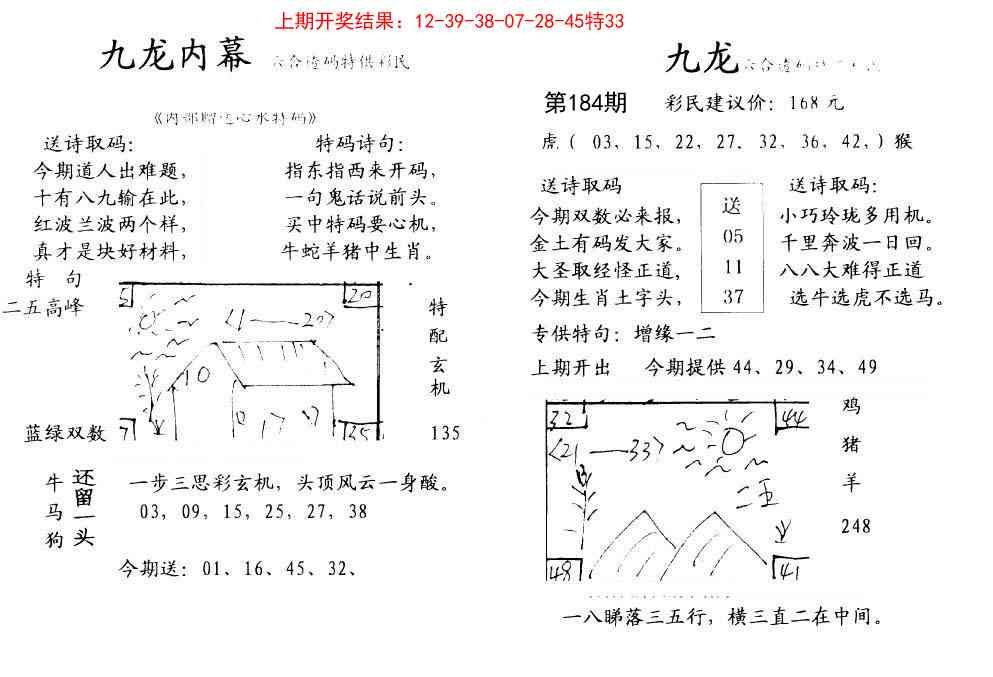 上期开奖结果：12-39-38-07-28-45特33
九龙内幕
六合透码特供彩民
《内部赠送心水特码》
送诗取码：
今期道人出难题，
十有八九输在此，
红波兰波两个样，
真才是块好材料，
特码诗句：
指东指西来开码，
一句鬼话说前头。
买中特码要心机，
牛蛇羊猪中生肖。
特 句
二五高峰
蓝绿双数
5
20
<1——20>
10
7
35
特配玄机
135
牛马狗
还留一头
一步三思彩玄机，头顶风云一身酸。
03，09，15，25，27，38
今期送：01、16、45、32、
九龙
第184期
彩民建议价：168 元
虎（ 03、15、22、27、32、36、42，）猴
送诗取码
今期双数必来报，
金土有码发大家。
大圣取经怪正道，
今期生肖土字头，
送
05
11
37
送诗取码：
小巧玲珑多用机。
千里奔波一日回。
八八大难得正道
选牛选虎不选马。
专供特句：增缘一二
上期开出 今期提供 44、29、34、49
32
44
<21——33>
二五
48
41
鸡
猪
羊
248
一八睇落三五行，横三直二在中间。